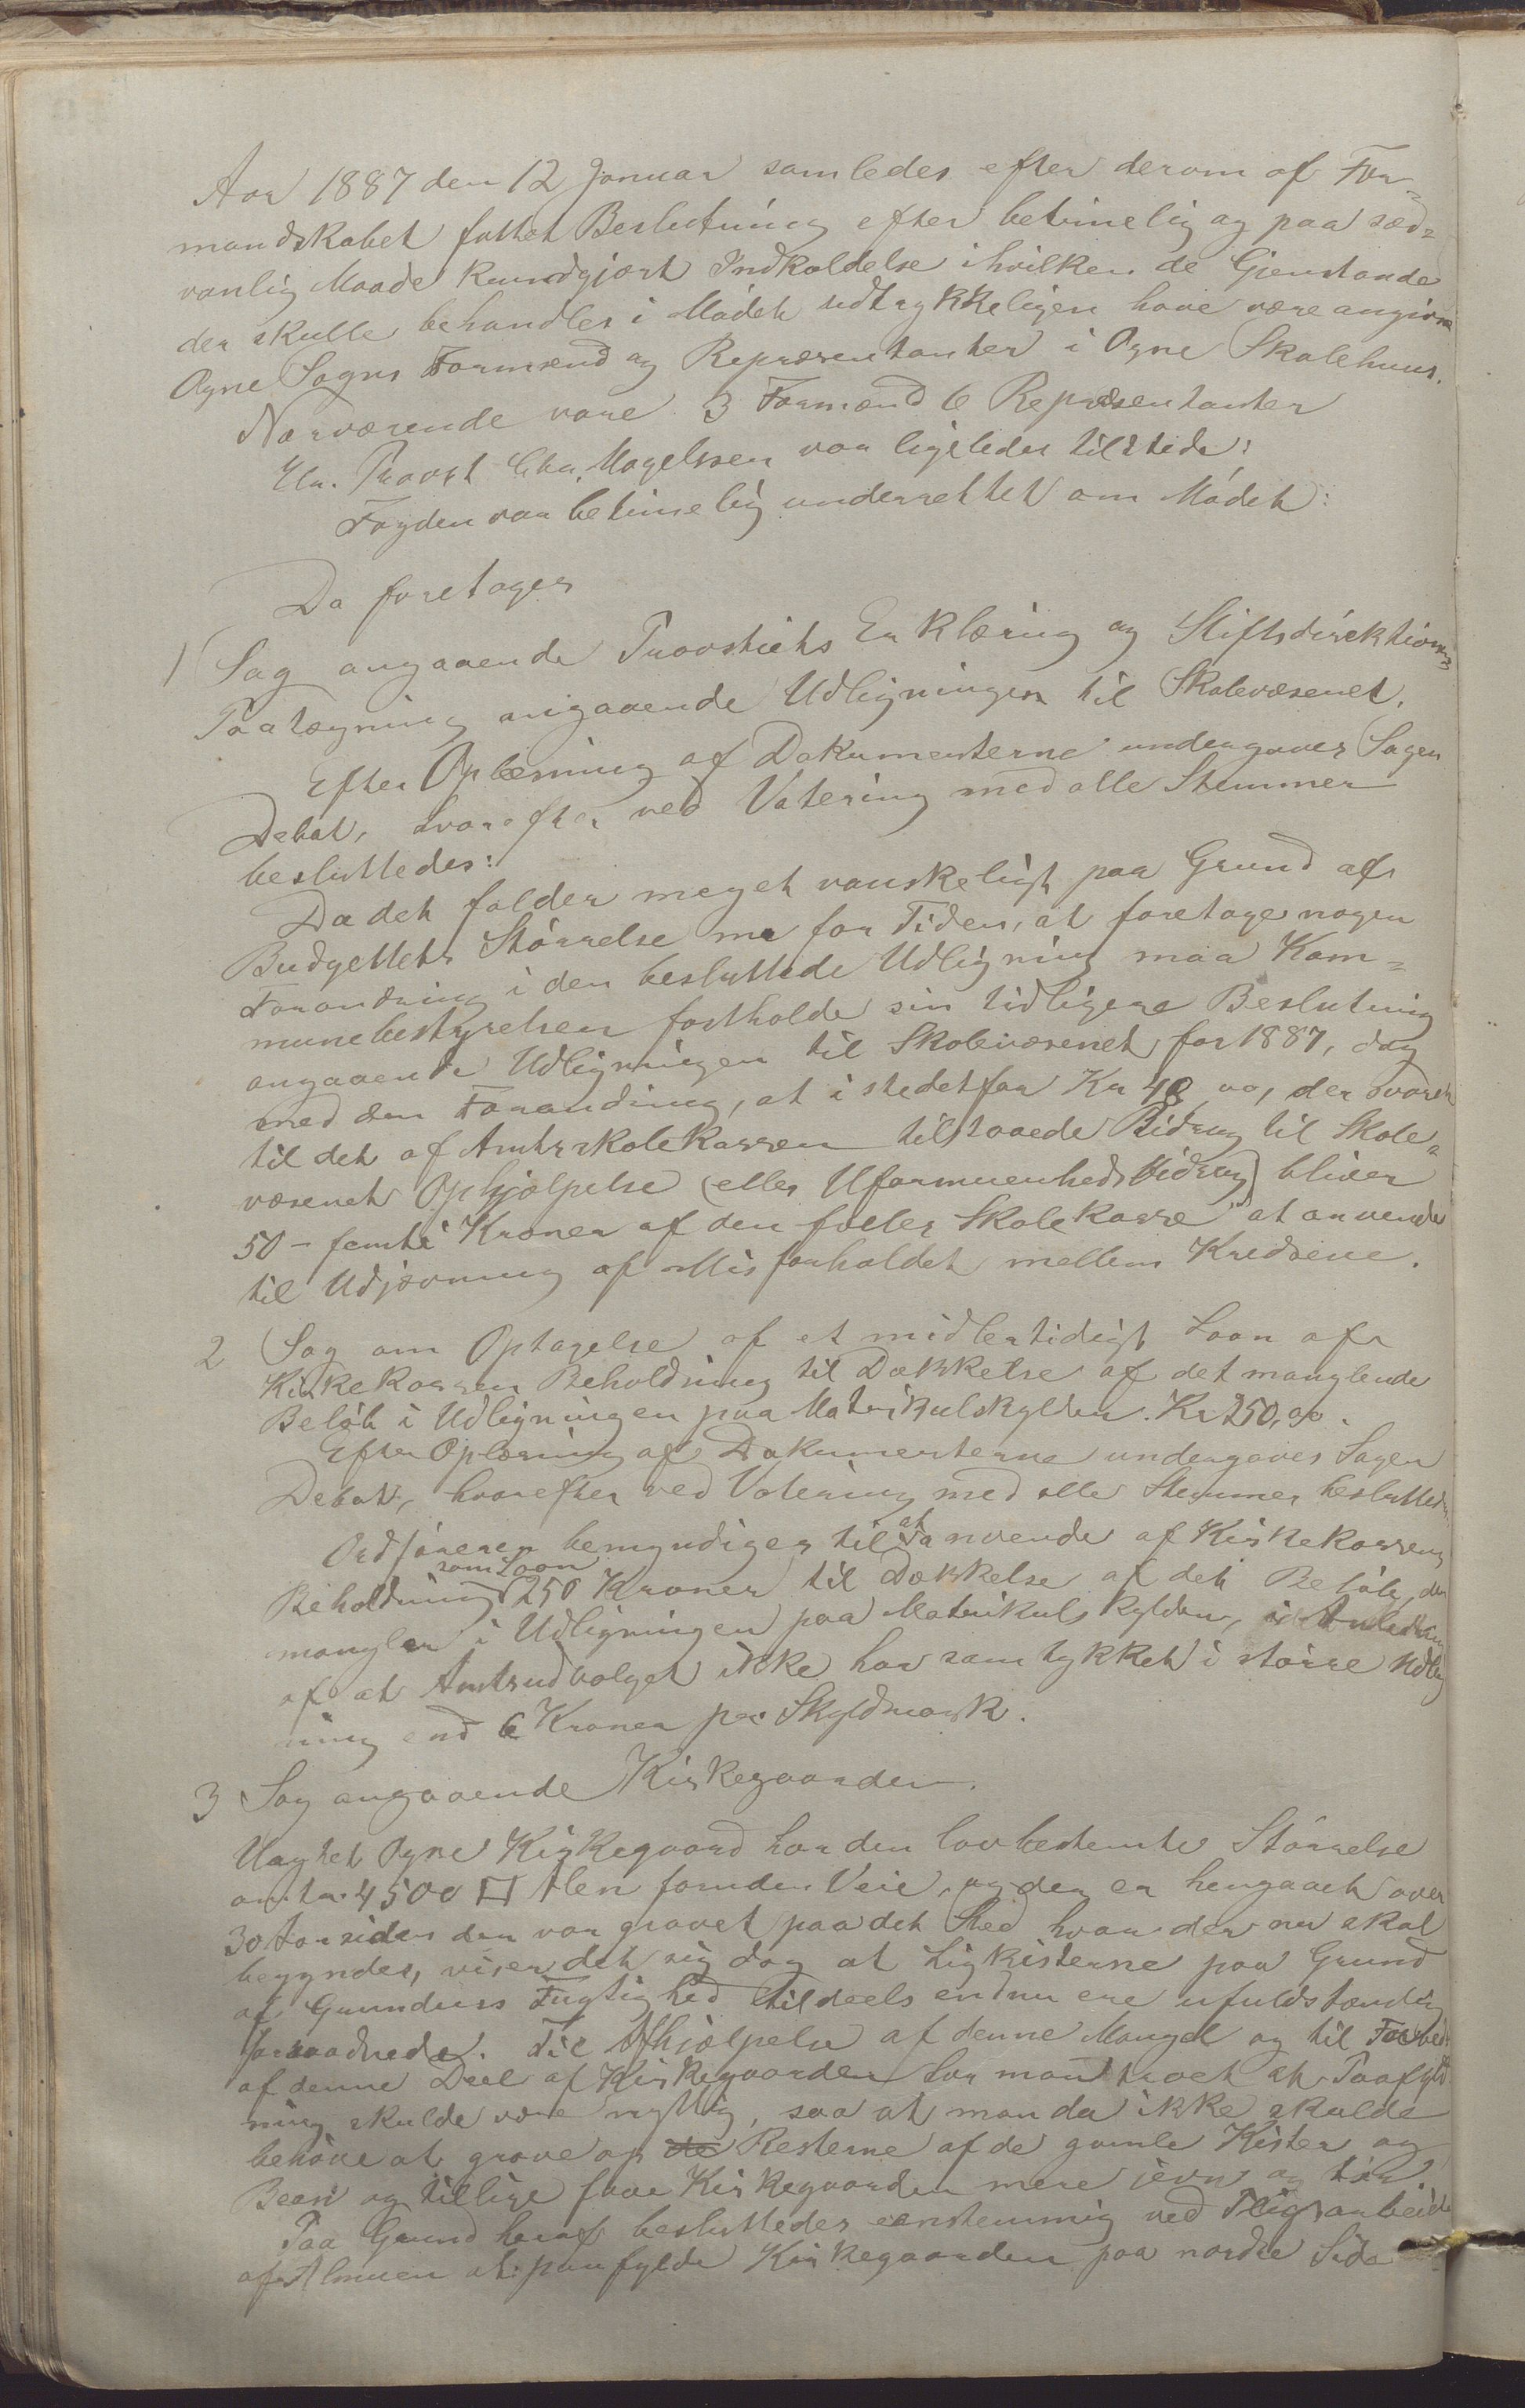 Aar 1887 den 12 Januar samledes efter derom af For-
mandskabet fattet Beslutning efter betimelig og paa sæd-
vanlig Maade kundgjort Indkaldelse i hvilken de Gjenstande
der skulle behandles i Mødet udtrykkeligen have være angivne
Ogne Sogns Formænd og Repræsentanter i Ogne Skolehuus.
Nærværende vare 3 Formænd 6 Repræsentanter
Hr. Provst Chr. Magelssen var ligeledes tilstede:
Fogden var betimelig underrettet om Mødet:
Da foretages
1 Sag angaaende Provstiets Erklæring og Stiftsdirektionens
Paategning angaaende Udligningen til Skolevæsenet.
Efter Oplæsning af Dokumenterne undergaves Sagen
Debat, hvorefter ved Votering med alle Stemmer
besluttedes:
Da det falder meget vanskeligt paa Grund af
Budgettets Størrelse nu for Tiden, at foretage nogen
Forandring i den besluttede Udligning maa Kom-
munebestyrelsen fastholde sin tidligere Beslutning
angaaende Udligningen til Skolevæsenet for 1887, dog
med den Forandring, at i stedetfor Kr 48,00, der svarer
til det af Amtsskolekassen tilstaaede Bidrag til Skole-
væsenets Ophjælpelse (eller Uformuenhedsbidrag) bliver
50 - femti Kroner af den fælles Skolekasse at anvende
til Udjævning af Misforholdet mellem Kredsene.
2 Sag om Optagelse af et midlertidigt Laan af
Kirkekassen Beholdning til Dækkelse af det manglende
Beløb i Udligningen paa Matrikulskylden. Kr 250,00.
Efter Oplæsning af Dokumenterne undergaves Sagen
Debat, hvorefter ved Votering med alle Stemmer besluttedes
Ordføreren bemyndiges til at anvende af Kirkekassens
Beholdning som Laan 250 Kroner til Dækkelse af det Beløb, der
mangler i Udligningen paa Matrikulskylden, i Anledning
af at Amtsudvalget ikke har samtykket i større Udlig
ning end 6 Kroner per Skyldmark.
3 Sag angaaende Kirkegaarden.
Uagtet Ogne Kirkegaard har den lovbestemte Størrelse
omtr. 4500 □ Alen foruden Veie, og der er hengaaet over
30 Aar siden der var gravet paa det Sted hvor der nu skal
begyndes, viser det sig dog at Ligkisterne paa Grund
af Grundens Fugtighed tildeels endnu ere ufuldstændig
forraadnede. Til Afhjælpelse af denne Mangel og til Forbedr
af denne Deel af Kirkegaarden har man troet at Paafyld
ning skulde være nyttig, saa at man da ikke skulde
behøve at grave op de Resterne af de gamle Kister og
Been og tillige faae Kirkegaarden mere jevn og tør.
Paa Grund heraf besluttedes eenstemmig ved Pligtarbeide
af Almuen at paafylde Kirkegaarden paa nordre Side